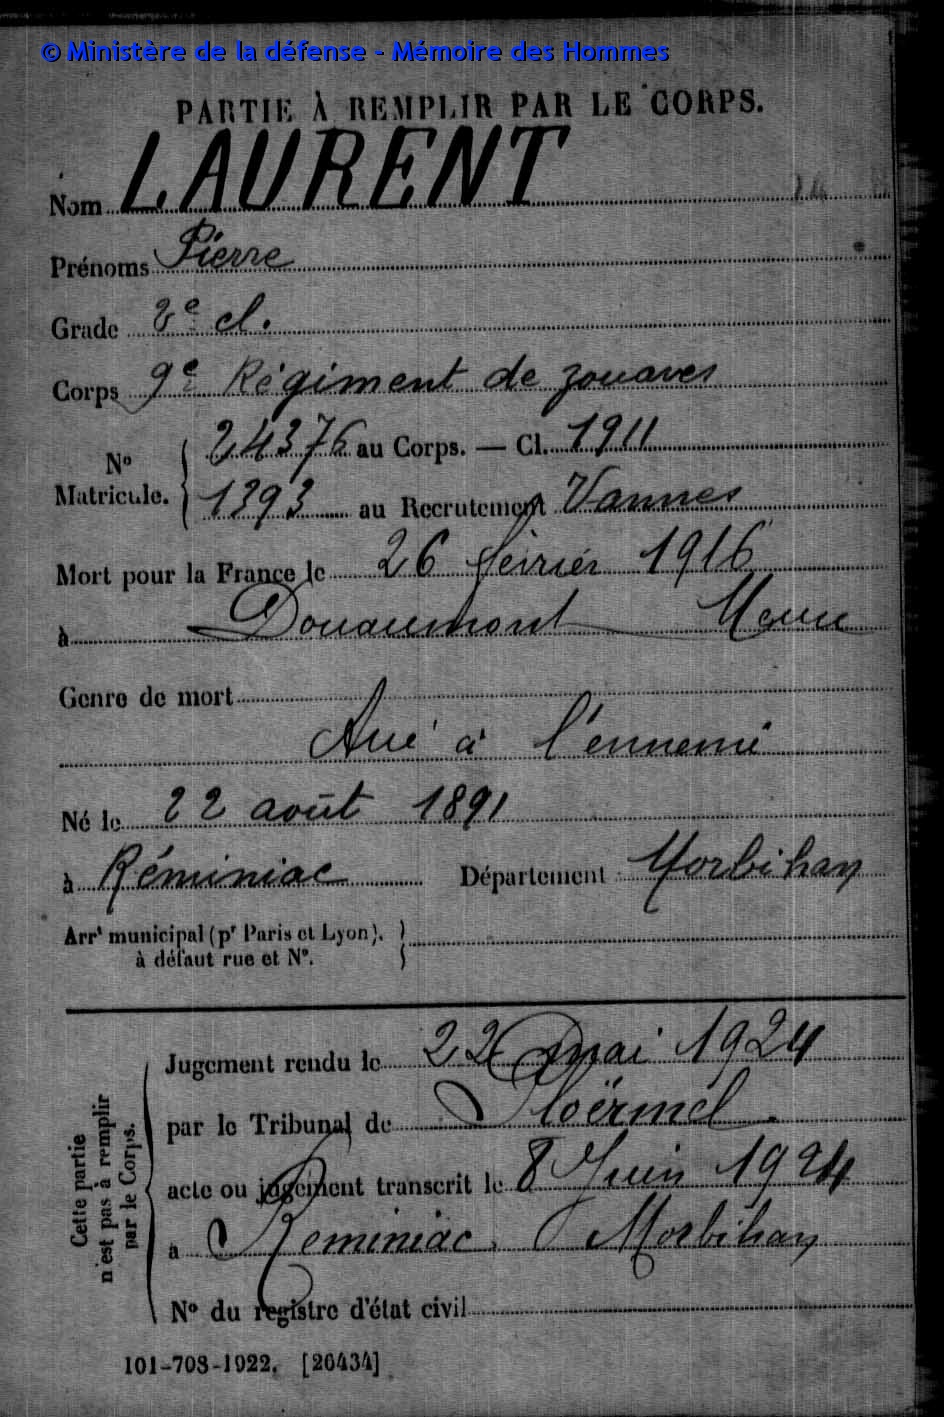 © Ministère de la défense - Mémoire des Hommes
PARTIE À REMPLIR PAR LE CORPS.
Nom LAURENT
Prénoms Pierre
Grade 2e cl.
Corps 9e Régiment de zouaves
N° Matricule. 24376 au Corps. — Cl. 1911
1393 au Recrutement Vannes
Mort pour la France le 26 février 1916
à Douaumont Meuse
Genre de mort
Tué à l'ennemi
Né le 22 août 1891
à Réminiac Département Morbihan
Arrt municipal (pr Paris et Lyon),
à défaut rue et N°.
Cette partie n'est pas à remplir par le Corps.
Jugement rendu le 22 mai 1924
par le Tribunal de Ploërmel.
acte ou jugement transcrit le 8 Juin 1924
à Réminiac. Morbihan
N° du registre d'état civil
101-708-1922. [26434]